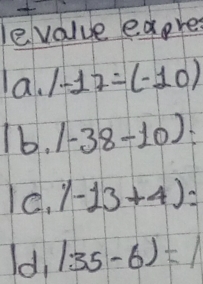 evalue expres
a. /-17=(-10)
b. /-38-10):
c. /-13+4)=
d, /:35-6)=/